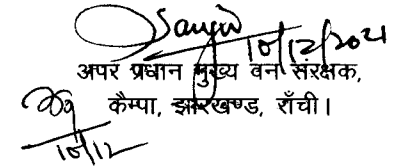 Sanjiv
10/12/2021
अपर प्रधान मुख्य वन संरक्षक,
कैम्पा, झारखण्ड, राँची।
10/12